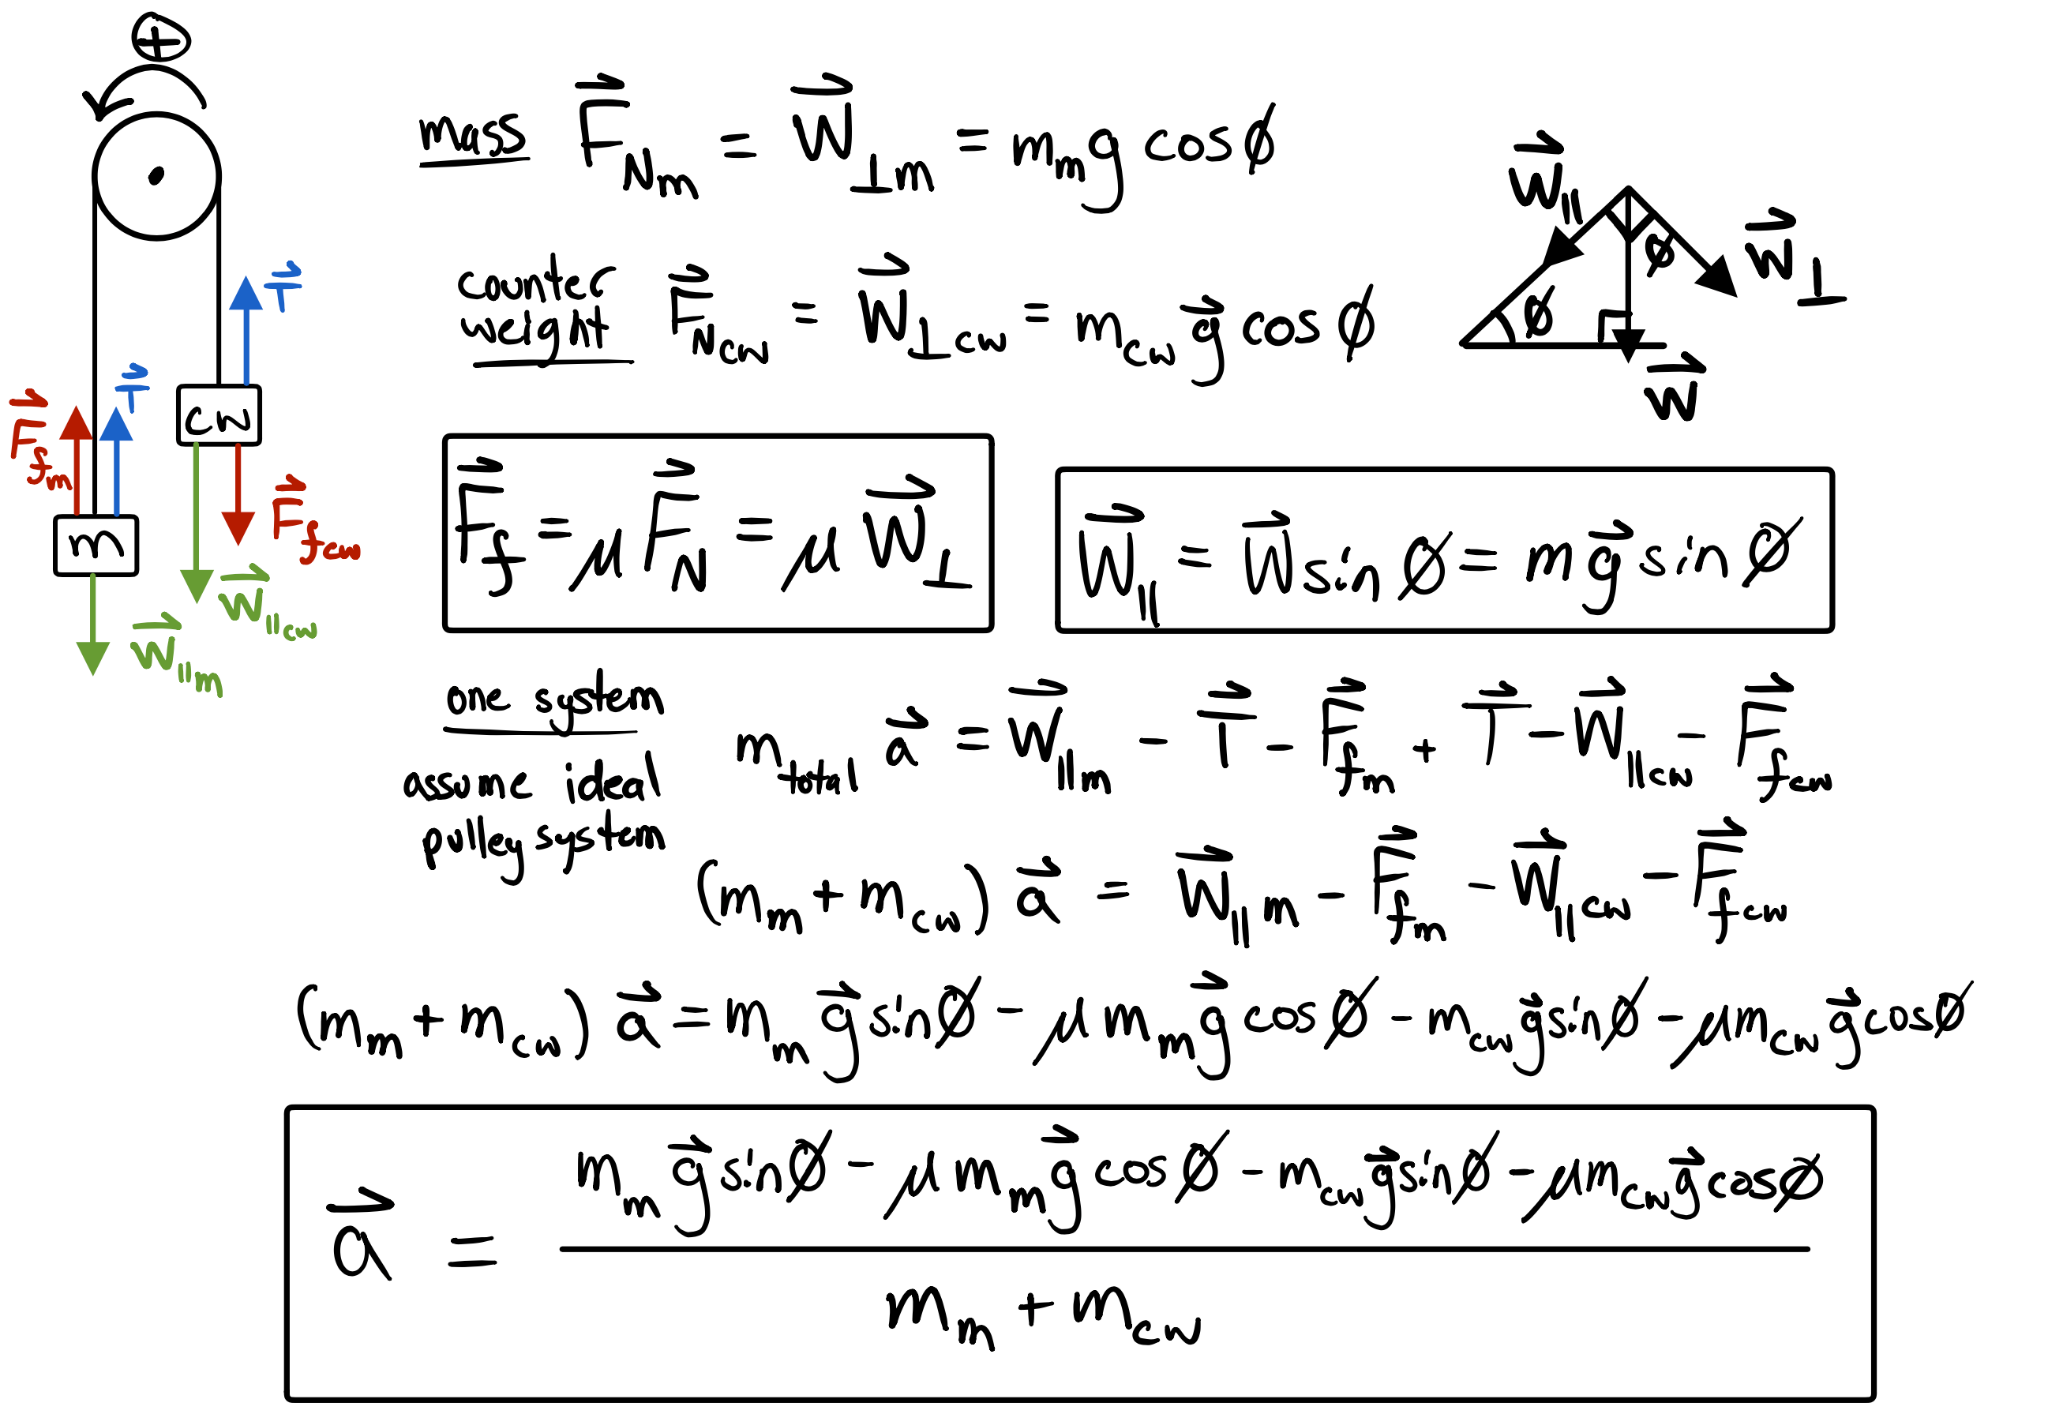 +
mass F⃗_Nm = W⃗_⊥m = m_m g cos ϕ
counter weight F⃗_Ncw = W⃗_⊥cw = m_cw g⃗ cos ϕ
W⃗_||
ϕ
W⃗_⊥
ϕ
W⃗
T⃗
T⃗
cw
F⃗_fm
m
F⃗_fcw
W⃗_||cw
W⃗_||m
F⃗_f = μ F⃗_N = μ W⃗_⊥
W⃗_|| = W⃗ sin ϕ = m g⃗ sin ϕ
one system
assume ideal
pulley system
m_total a⃗ = W⃗_||m - T⃗ - F⃗_fm + T⃗ - W⃗_||cw - F⃗_fcw
(m_m + m_cw) a⃗ = W⃗_||m - F⃗_fm - W⃗_||cw - F⃗_fcw
(m_m + m_cw) a⃗ = m_m g⃗ sin ϕ - μ m_m g⃗ cos ϕ - m_cw g⃗ sin ϕ - μ m_cw g⃗ cos ϕ
a⃗ = (m_m g⃗ sin ϕ - μ m_m g⃗ cos ϕ - m_cw g⃗ sin ϕ - μ m_cw g⃗ cos ϕ) / (m_m + m_cw)